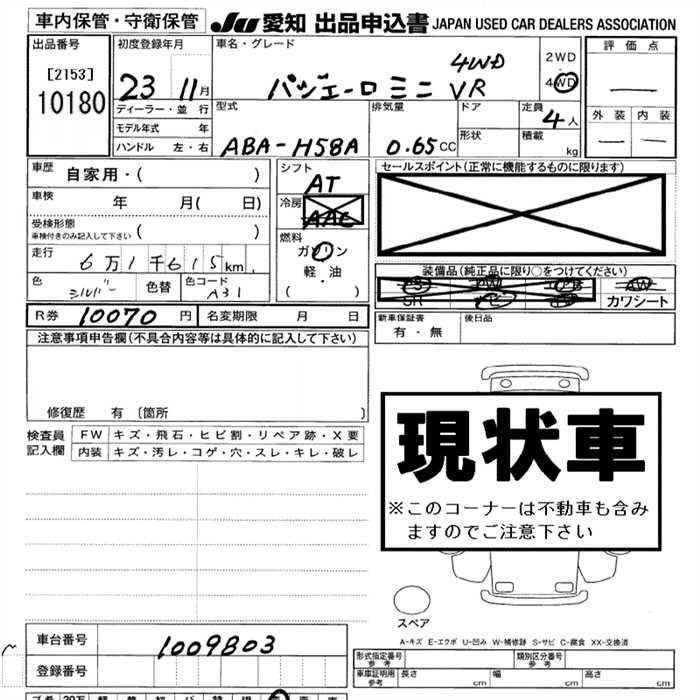 車内保管・守衛保管 JU 愛知 出品申込書 JAPAN USED CAR DEALERS ASSOCIATION
出品番号
[2153]
10180
初度登録年月
23 11月
ディーラー・並行
モデル年式 年
ハンドル 左・右
車名・グレード
パジェーロミニ VR
4WD
2WD
4WD
型式
ABA-H58A
排気量
0.65CC
ドア
形状
定員
4人
積載
kg
評価点
外装 内装
車歴 自家用・( )
車検 年 月( 日)
受検形態
車検付きのみ記入して下さい ( )
走行 6万1千615km
色 シルバー 色替 色コード A31
シフト
AT
冷房
AAC
燃料
ガソリン
・
軽・油
( )
セールスポイント(正常に機能するものに限ります)
装備品(純正品に限り○をつけてください)
PS PW エアB AW
SR ナビ TV カワシート
R券 10070 円 名変期限 月 日
新車保証書
有・無
後日品
注意事項申告欄(不具合内容等は具体的に記入して下さい)
修復歴 有 〔箇所 〕
検査員
記入欄
FW キズ・飛石・ヒビ割・リペア跡・X要
内装 キズ・汚レ・コゲ・穴・スレ・キレ・破レ
現状車
※このコーナーは不動車も含み
ますのでご注意下さい
スペア
A-キズ E-エクボ U-凹み W-補修跡 S-サビ C-腐食 XX-交換済
車台番号 1009803
登録番号
形式指定番号
参考
類別区分番号
参考
車庫証明用
参考
長さ cm 幅 cm 高さ cm